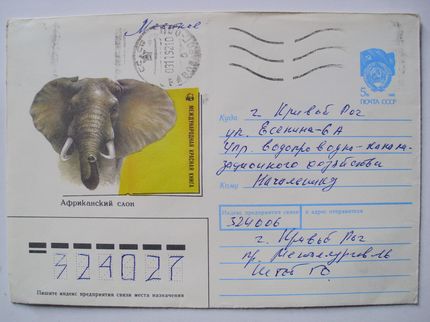 Местное
5к
ПОЧТА СССР
МЕЖДУНАРОДНАЯ КРАСНАЯ КНИГА
Африканский слон
Куда
г. Кривой Рог
ул. Есенина-6А
Упр. водопроводно-канали-
зационного хозяйства
Кому
Начальнику
Индекс предприятия связи и адрес отправителя
324006
г. Кривой Рог
пр. Металлургов
Штаб ГО.
324027
Пишите индекс предприятия связи места назначения